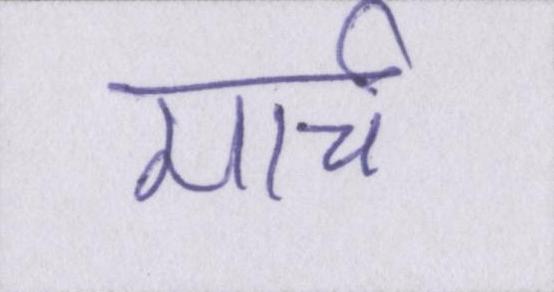 मार्च